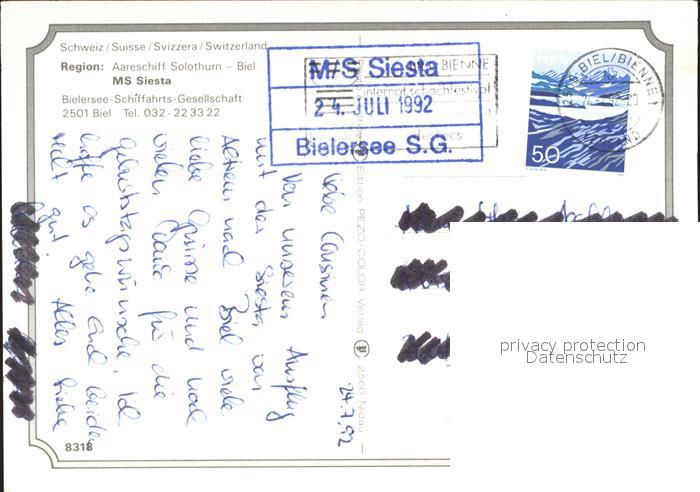 Schweiz / Suisse / Svizzera / Switzerland
Region: Aareschiff Solothurn – Biel
MS Siesta
Bielersee-Schiffahrts-Gesellschaft
2501 Biel Tel. 032 - 22 33 22
M/S Siesta
24. JULI 1992
Bielersee S.G.
BIENNE
internat. schachfestival
BIEL/BIENNE 1
50
24.7.92
Liebe Cousinen
Von unserem Ausflug
mit der Siesta von
nach Biel viele
liebe Grüsse und noch
vielen Dank für die
Geburtstagswünsche. Ich
hoffe es gehe Euch beiden
recht gut. Alles Liebe
Edition PEZO-COLOR Verlag
2560 Nidau
8318
privacy protection
Datenschutz